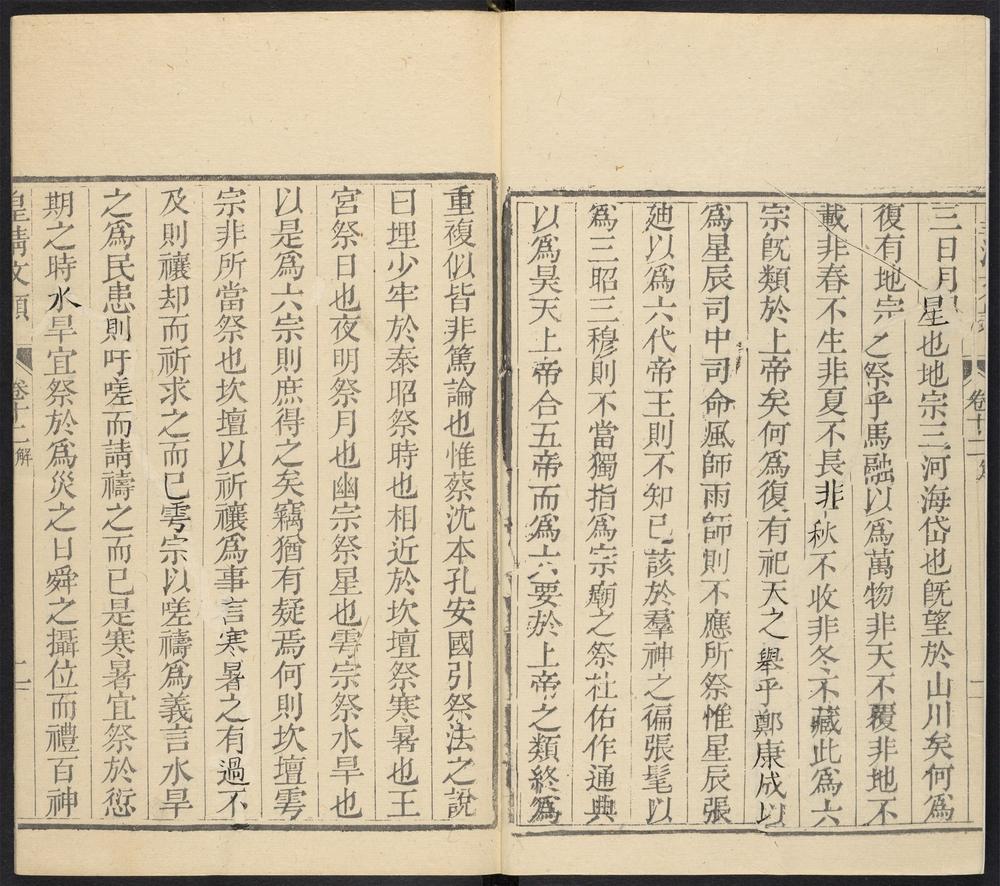 三日月星也地宗三河海岱也旣望於山川矣何爲
復有地宗之祭乎馬融以爲萬物非天不覆非地不
載非春不生非夏不長非秋不收非冬不藏此爲六
宗旣類於上帝矣何爲復有祀天之舉乎鄭康成以
爲星辰司中司命風師雨師則不應所祭惟星辰張
廸以爲六代帝王則不知已該於羣神之徧張髦以
爲三昭三穆則不當獨指爲宗廟之祭杜佑作通典
以爲昊天上帝合五帝而爲六要於上帝之類終爲
重複似皆非篤論也惟蔡沈本孔安國引祭法之說
曰埋少牢於泰昭祭時也相近於坎壇祭寒暑也王
宮祭日也夜明祭月也幽宗祭星也雩宗祭水旱也
以是爲六宗則庶得之矣竊猶有疑焉何則坎壇雩
宗非所當祭也坎壇以祈禳爲事言寒暑之有過不
及則禳却而祈求之而已雩宗以嗟禱爲義言水旱
之爲民患則吁嗟而請禱之而已是寒暑宜祭於愆
期之時水旱宜祭於爲災之日舜之攝位而禮百神
皇清文類 卷十二 解 二